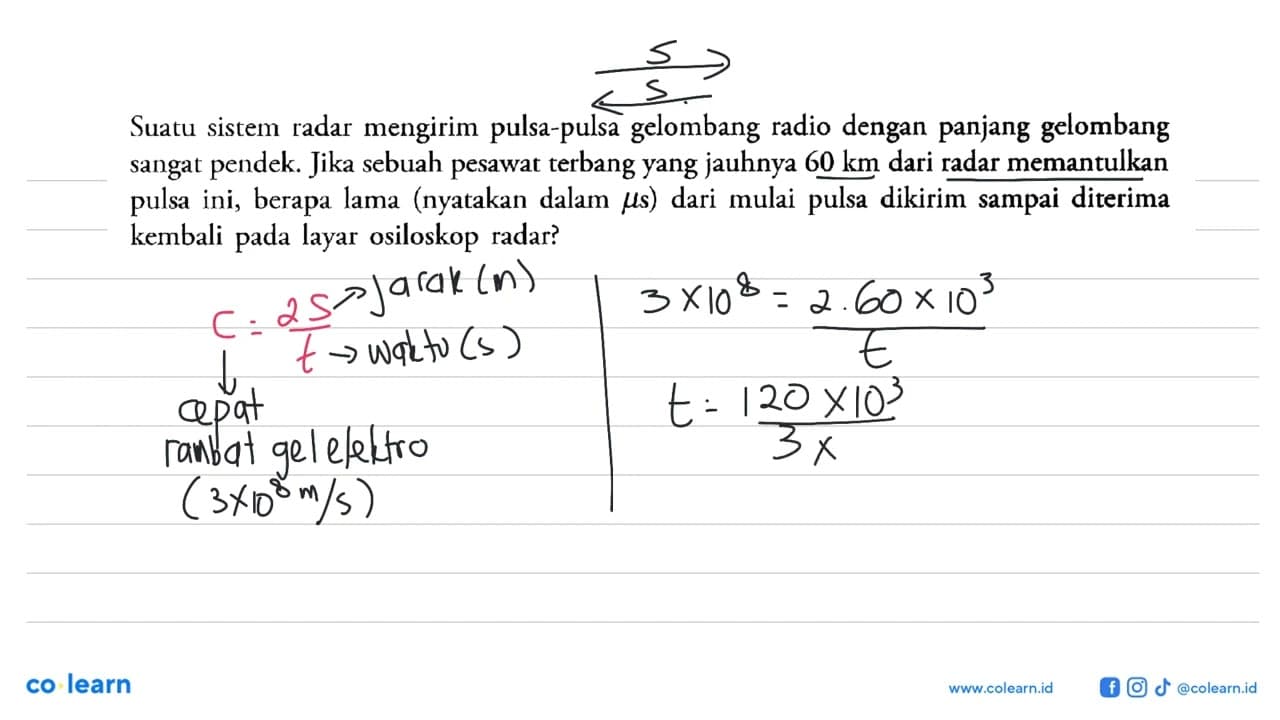 S
S
Suatu sistem radar mengirim pulsa-pulsa gelombang radio dengan panjang gelombang
sangat pendek. Jika sebuah pesawat terbang yang jauhnya 60 km dari radar memantulkan
pulsa ini, berapa lama (nyatakan dalam μs) dari mulai pulsa dikirim sampai diterima
kembali pada layar osiloskop radar?
C = 2S/t
→ Jarak (m)
→ waktu (s)
↓
cepat
rambat gel elektro
(3×10⁸ m/s)
3×10⁸ = 2.60×10³/t
t = 120×10³/3×
co learn
www.colearn.id
@colearn.id